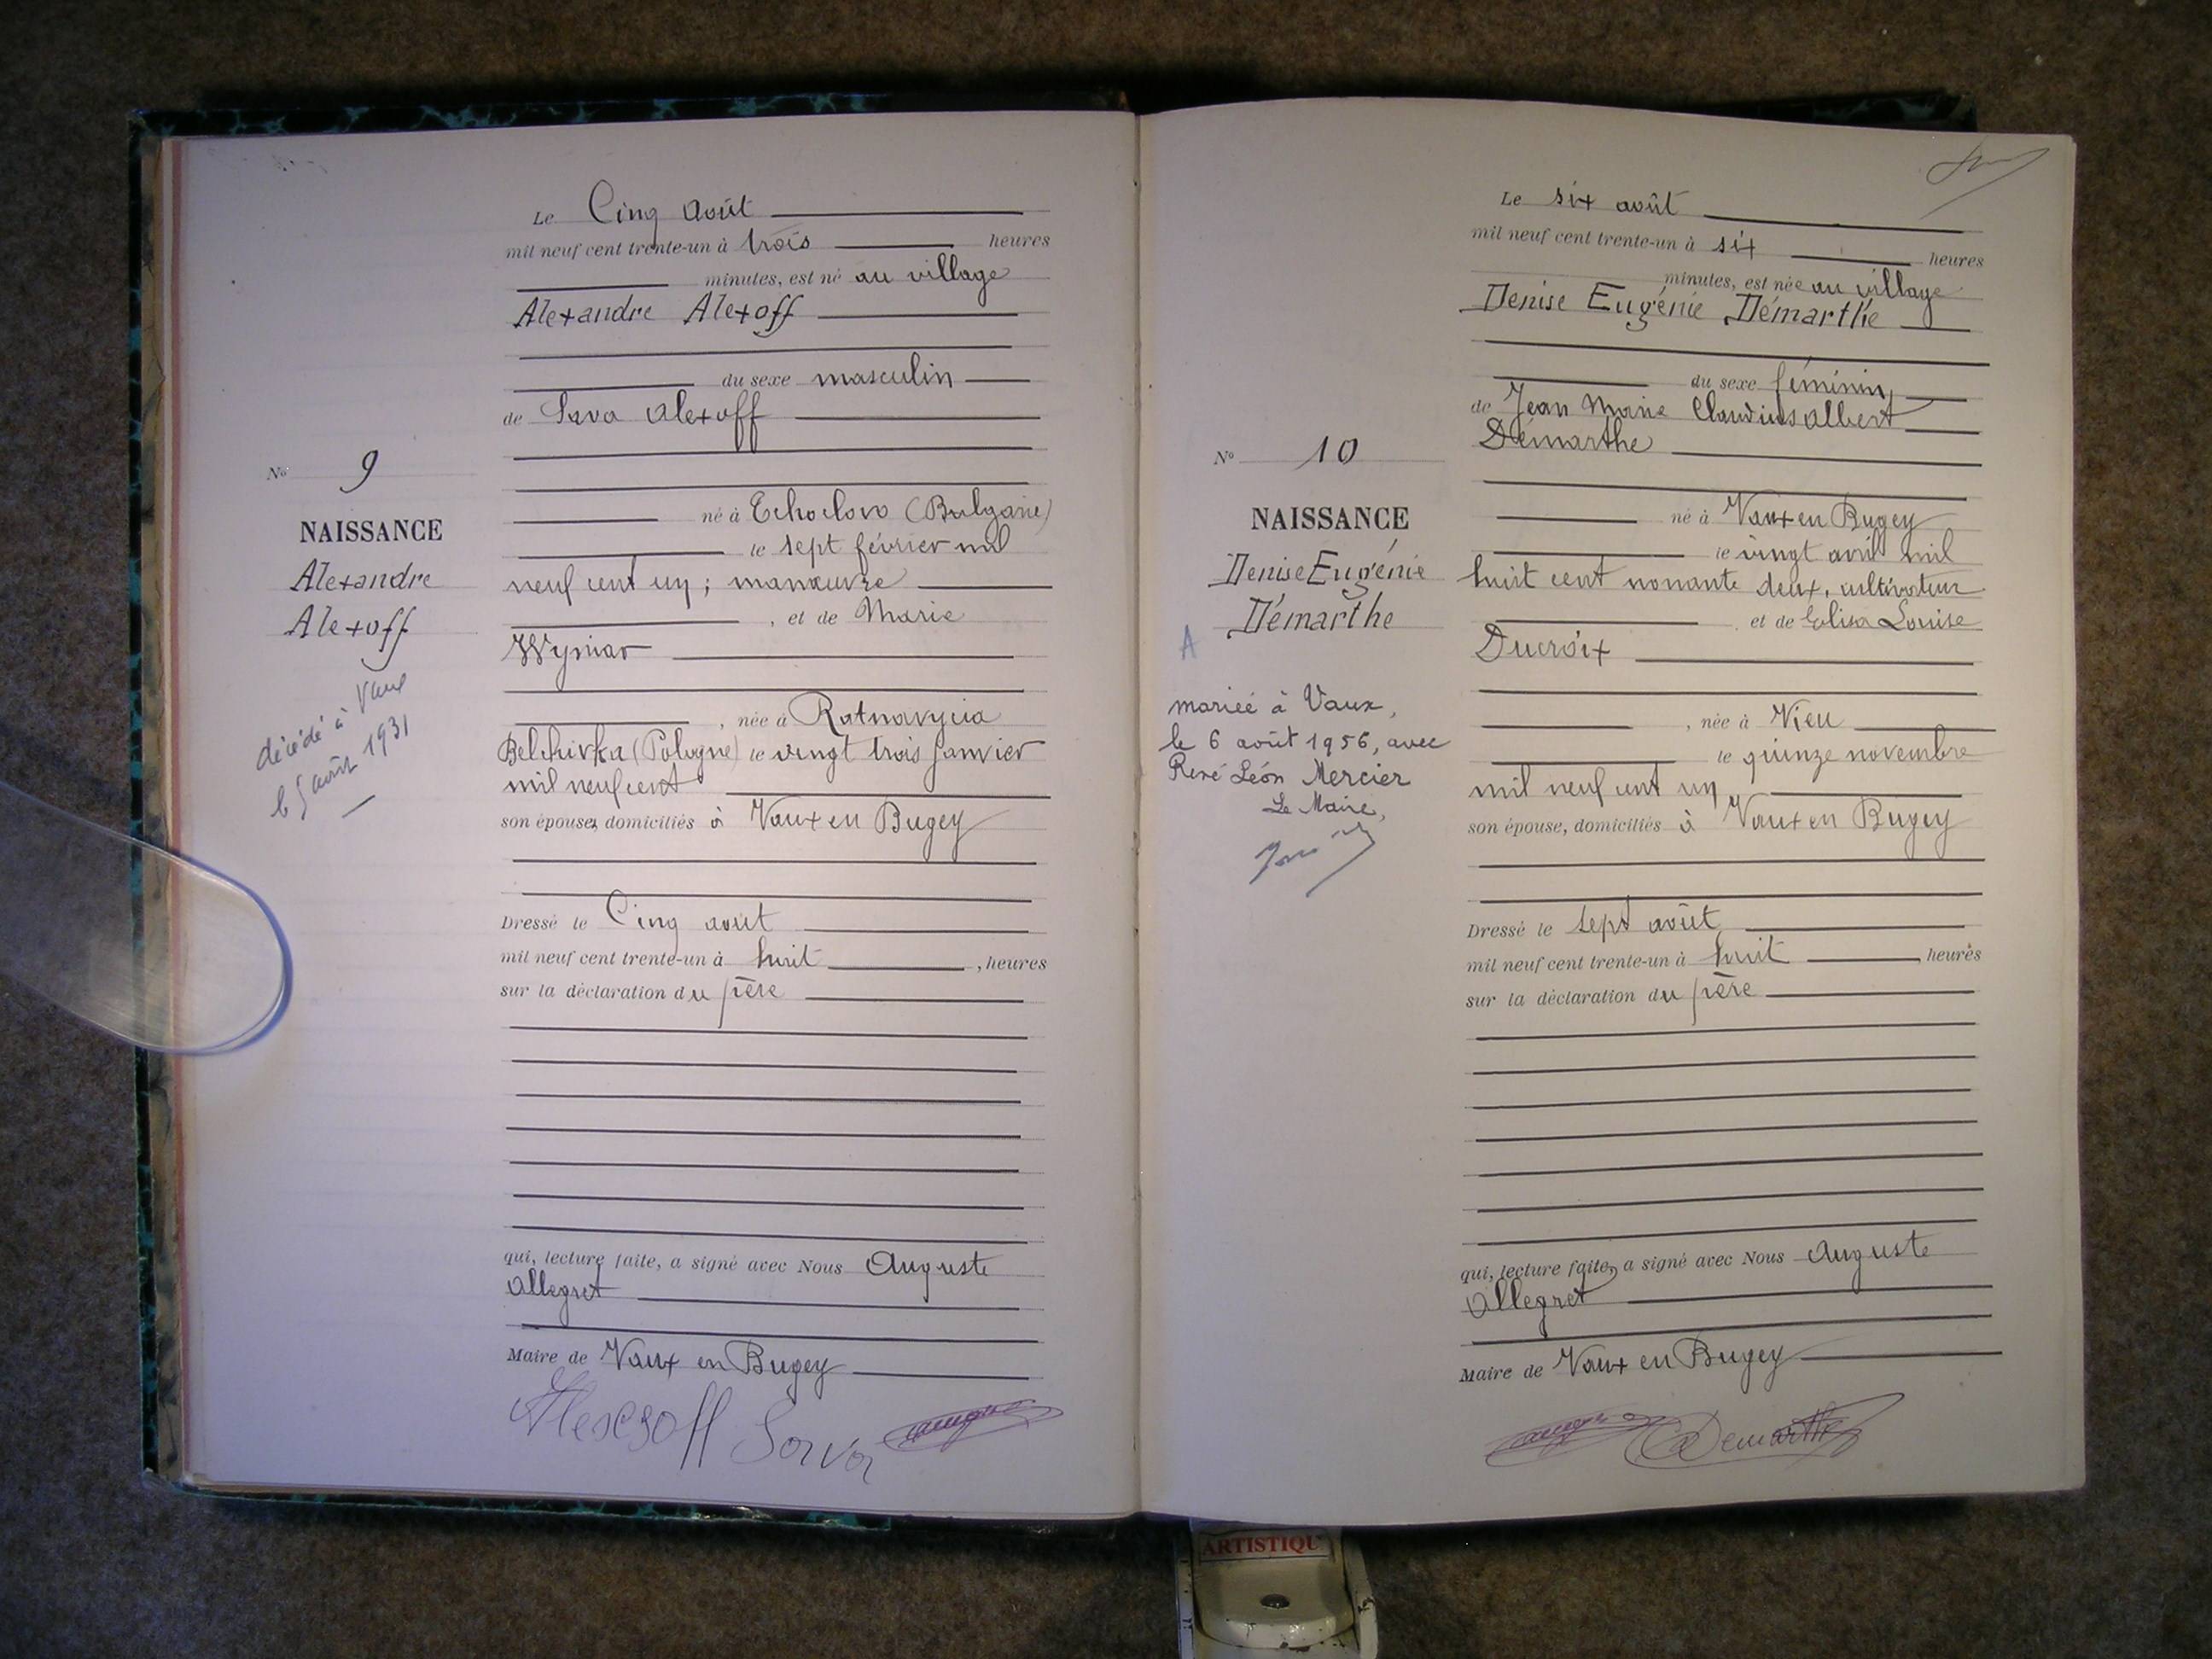 Le Cinq Août
mil neuf cent trente-un à trois heures
minutes, est né au village
Alexandre Alexoff
du sexe masculin
de Sava Alexoff
né à Tchoclovo (Bulgarie)
le sept février mil
neuf cent un ; manœuvre
, et de Marie
Wyniar
, née à Ratnavycia
Belchivka (Pologne) le vingt trois janvier
mil neuf cent
son épouse, domiciliés à Vaux en Bugey
Dressé le Cinq août
mil neuf cent trente-un à huit , heures
sur la déclaration du père
qui, lecture faite, a signé avec Nous Auguste
Allegret
Maire de Vaux en Bugey
Alexsoff Sava
No 9
NAISSANCE
Alexandre
Alexoff
décédé à Vaux
le 5 août 1931
Le six août
mil neuf cent trente-un à six heures
minutes, est née au village
Denise Eugénie Démarthe
du sexe féminin
de Jean Marie Claudius Albert
Démarthe
né à Vaux en Bugey
le vingt avril mil
huit cent nonante deux, cultivateur
et de Elisa Louise
Ducroix
, née à Vieu
le quinze novembre
mil neuf cent un
son épouse, domiciliés à Vaux en Bugey
Dressé le sept août
mil neuf cent trente-un à huit heures
sur la déclaration du père
qui, lecture faite, a signé avec Nous Auguste
Allegret
Maire de Vaux en Bugey
Demarthe
No 10
NAISSANCE
Denise Eugénie
Démarthe
A
mariée à Vaux,
le 6 août 1956, avec
René Léon Mercier
Le Maire,
ARTISTIQU